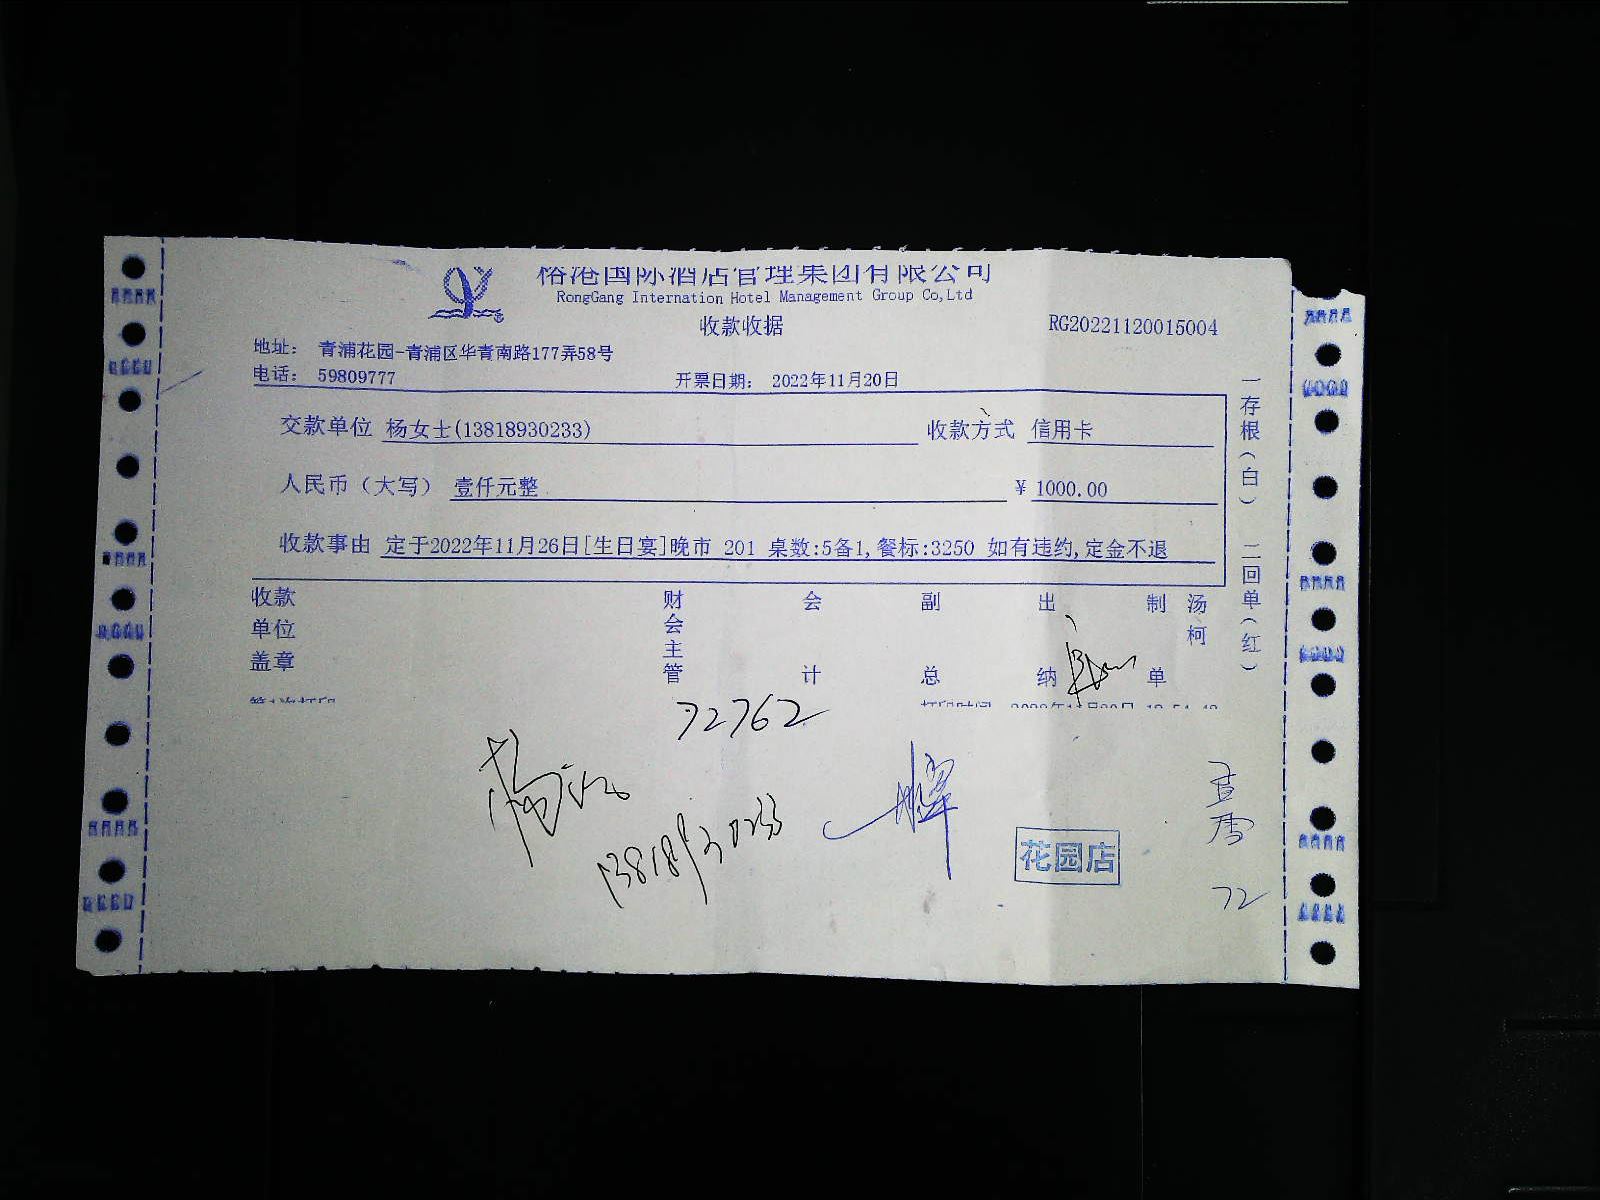 俗港国际酒店管理集团有限公司
RongGang Internation Hotel Management Group Co,Ltd
收款收据
RG20221120015004
地址: 青浦花园-青浦区华青南路177弄58号
电话: 59809777
开票日期: 2022年11月20日
交款单位 杨女士(13818930233) 收款方式 信用卡
人民币(大写) 壹仟元整 ¥ 1000.00
收款事由 定于2022年11月26日[生日宴]晚市 201 桌数:5备1,餐标:3250 如有违约,定金不退
一存根(白) 二回单(红)
收款单位盖章 财会主管 会计 副总 出纳 制单 汤柯
72762
13818930233
花园店
72